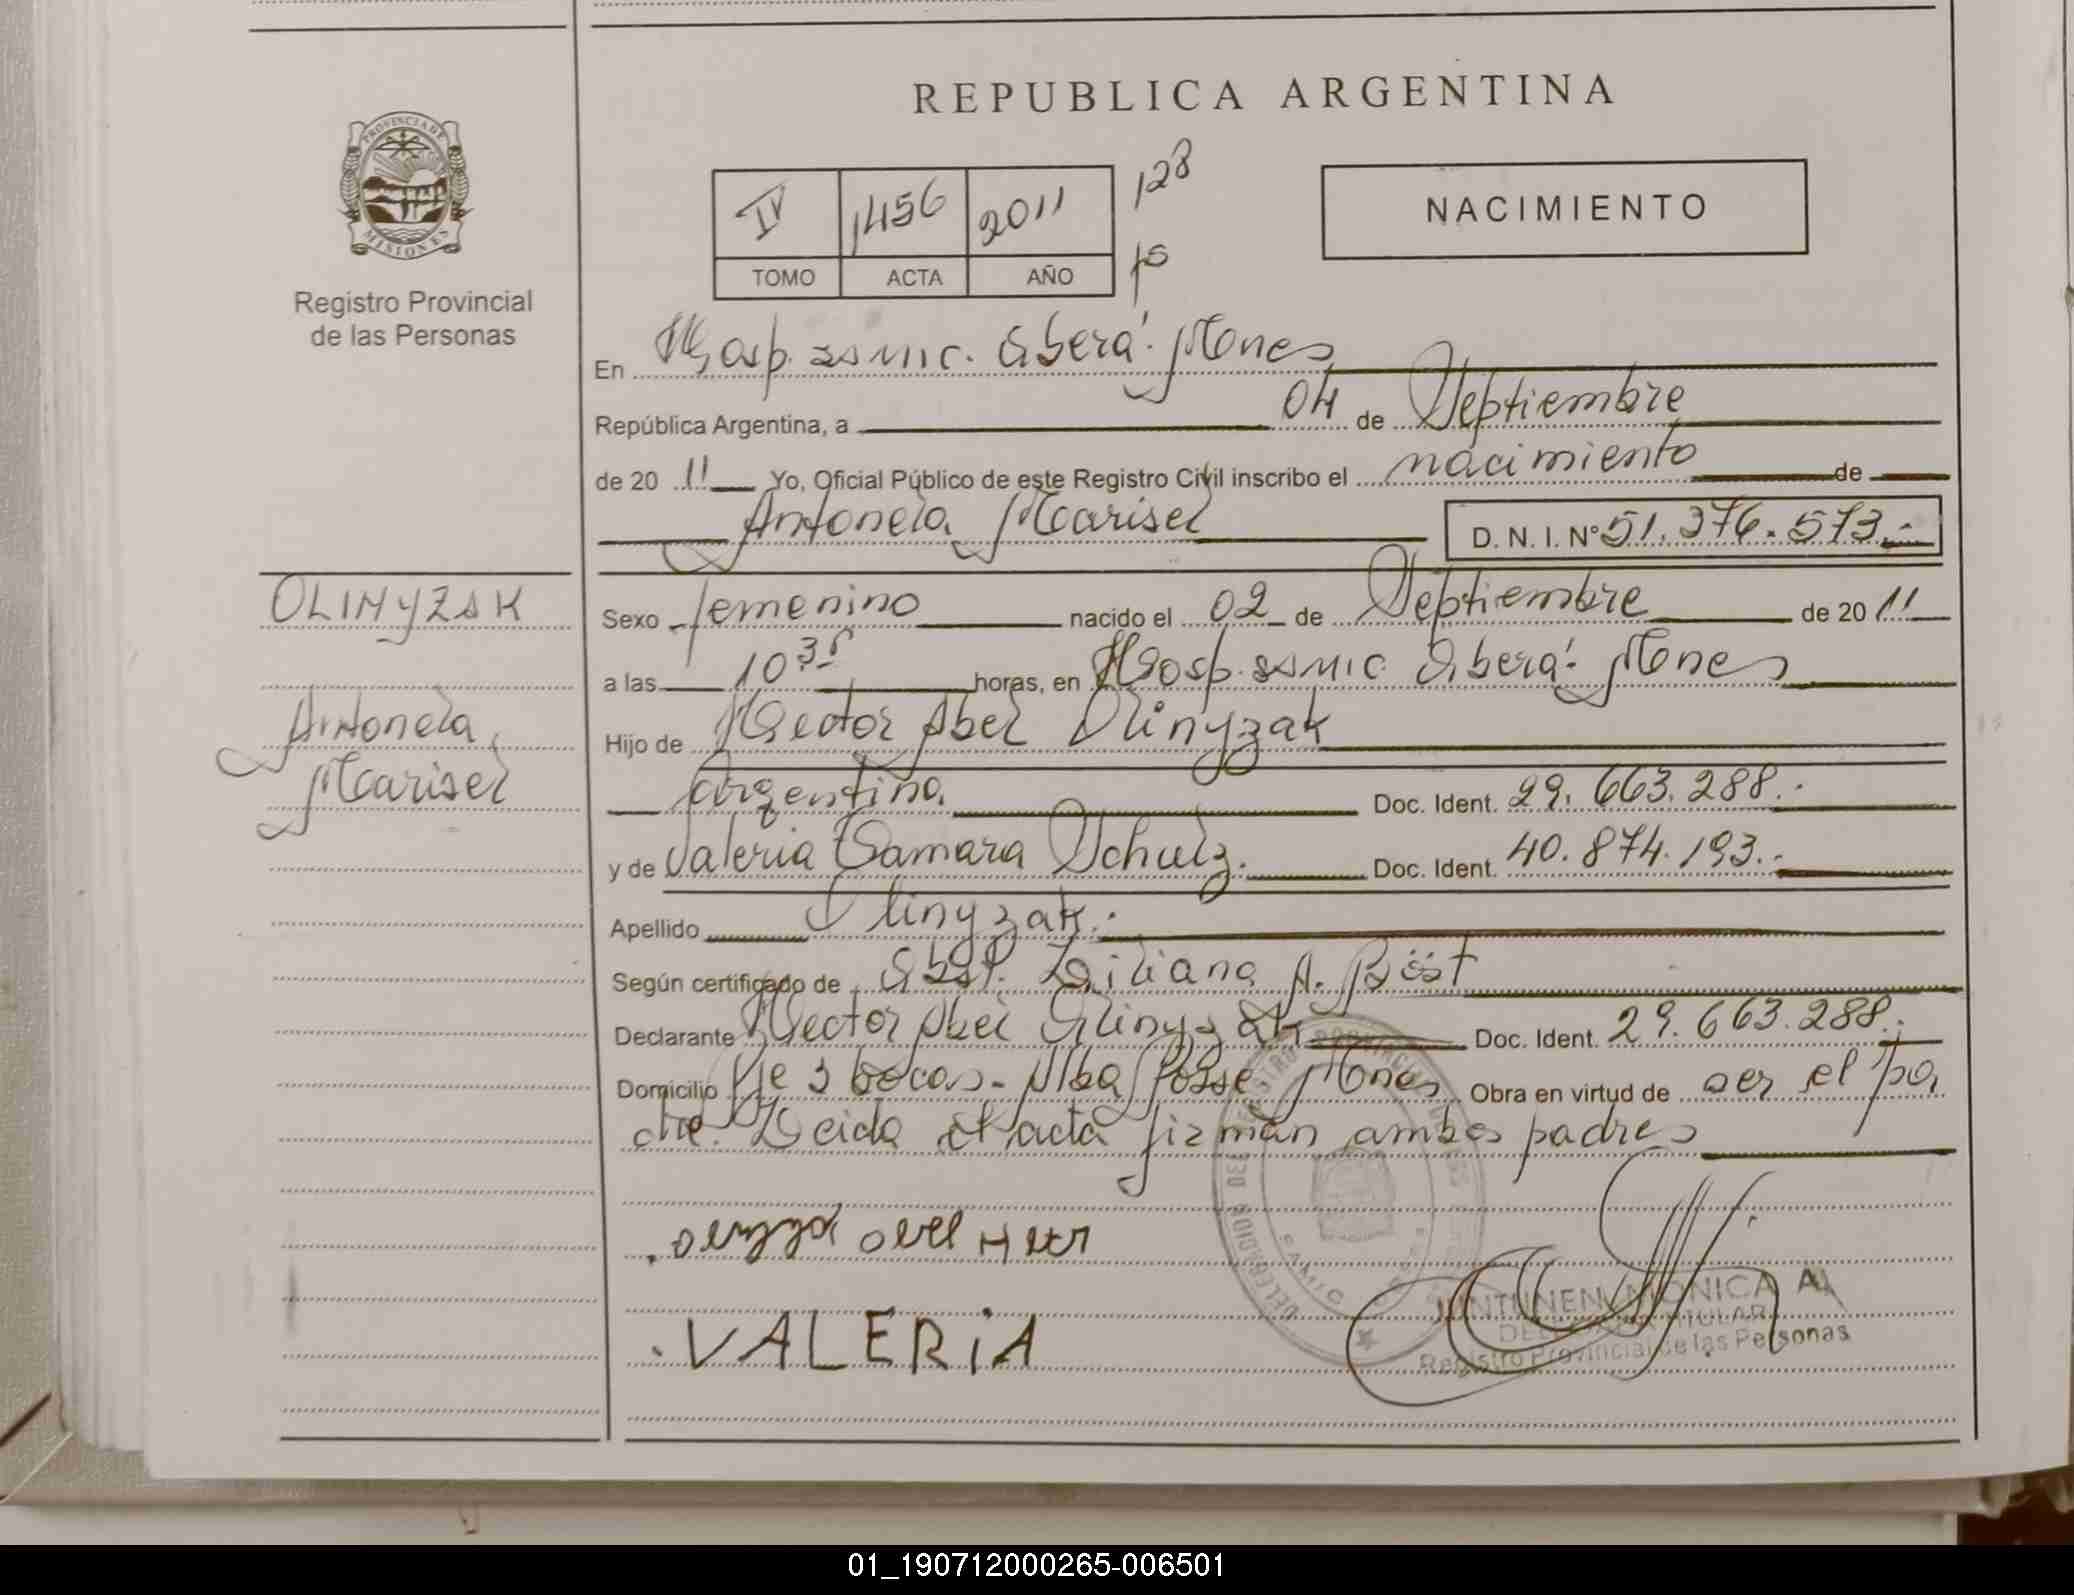 REPUBLICA ARGENTINA
PROVINCIA DE
MISIONES
Registro Provincial
de las Personas
IV 1456 2011 128
TOMO ACTA AÑO
NACIMIENTO
En Hosp. SAMIC. Oberá. Mones
República Argentina, a 04 de Septiembre
de 20 11 Yo, Oficial Público de este Registro Civil inscribo el nacimiento de
Antonela Marisel D. N. I. N° 51.376.573.-
OLINYZAK
Antonela
Marisel
Sexo femenino nacido el 02 de Septiembre de 20 11
a las 10 35 horas, en Hosp. SAMIC Oberá. Mones
Hijo de Hector Abel Olinyzak
argentino. Doc. Ident. 29.663.288.-
y de Valeria Tamara Schulz. Doc. Ident. 40.874.193.-
Apellido Olinyzak.
Según certificado de Obst. Liliana A. Böst
Declarante Hector Abel Olinyzak Doc. Ident. 29.663.288.-
Domicilio Pje 3 bocas - Alba Posse Mones Obra en virtud de ser el pa
dre. Leida el acta firman ambos padres
VALERiA
JUNTUNEN MONICA A.
DELEGADA TITULAR
Registro Provincial de las Personas
01_190712000265-006501